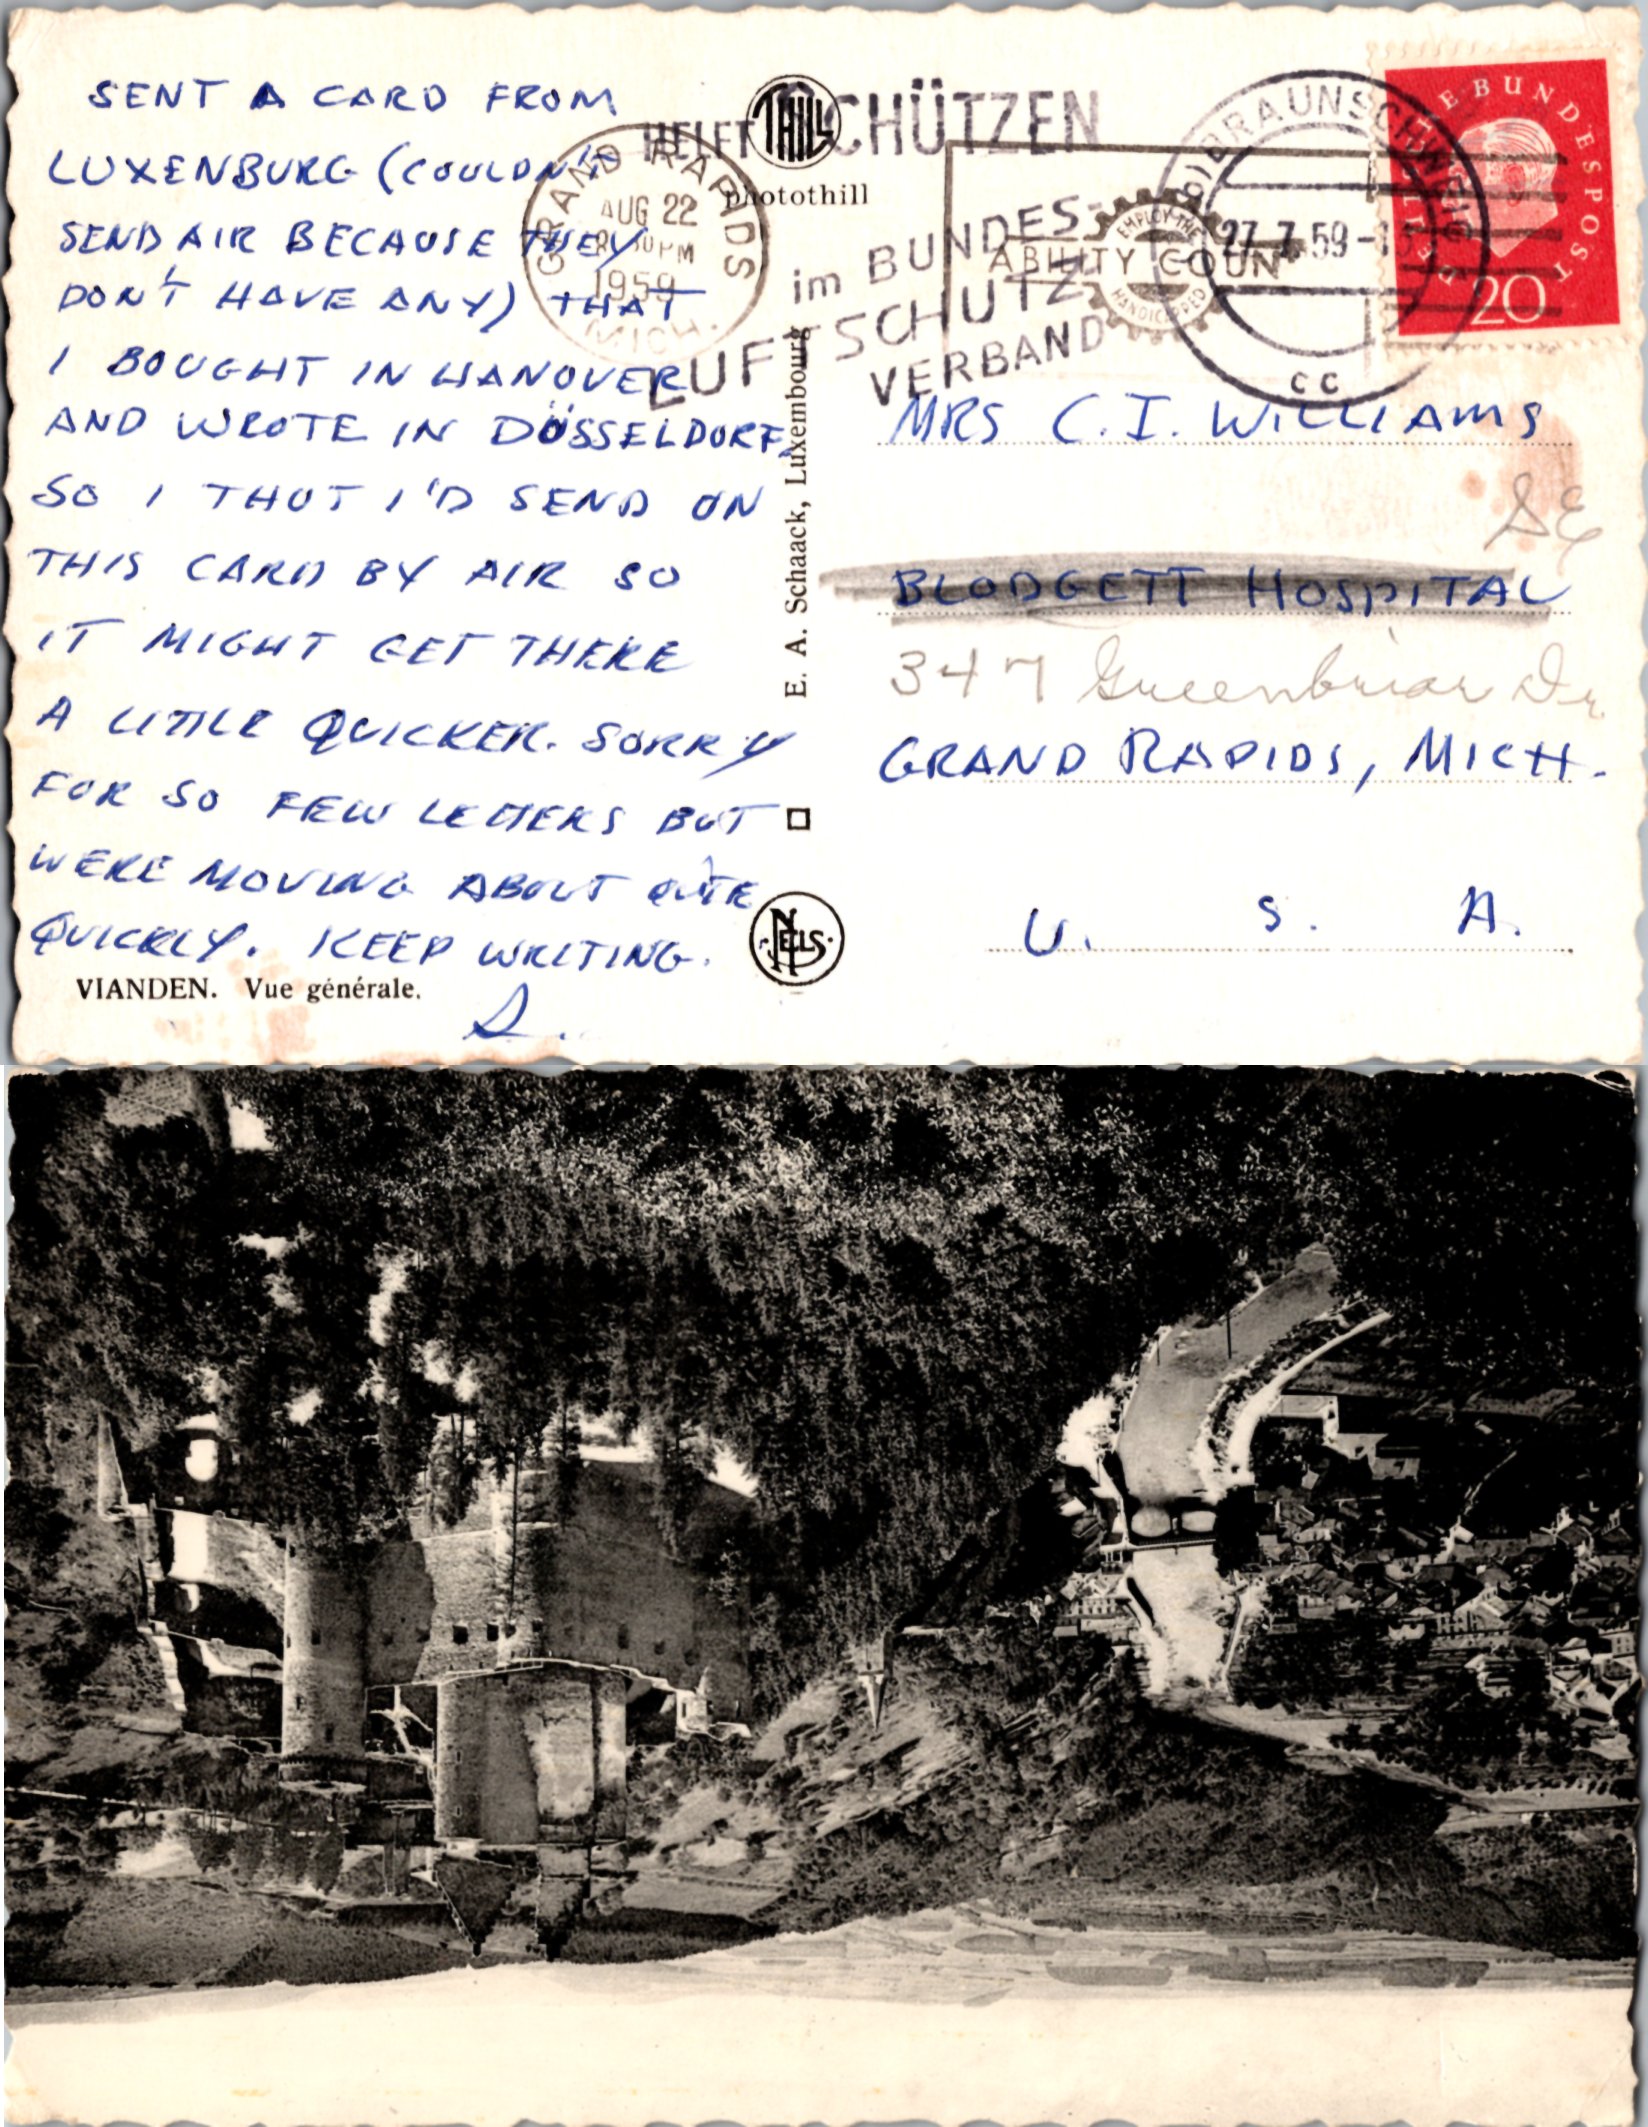 SENT A CARD FROM
LUXENBURG (COULDN'T
SEND AIR BECAUSE THEY
DON'T HAVE ANY) THAT
I BOUGHT IN HANOVER
AND WROTE IN DÜSSELDORF,
SO I THOT I'D SEND ON
THIS CARD BY AIR SO
IT MIGHT GET THERE
A LITTLE QUICKER. SORRY
FOR SO FEW LETTERS BUT
WERE MOVING ABOUT QUITE
QUICKLY. KEEP WRITING.
S.
VIANDEN. Vue générale.
THILL
photothill
E. A. Schaack, Luxembourg
NELS
GRAND RAPIDS
AUG 22
PM
1959
MICH.
HELFT SCHÜTZEN
im BUNDES-
LUFTSCHUTZ-
VERBAND
EMPLOY THE
ABILITY COUN
HANDICAPPED
BRAUNSCHWEIG
27.7.59
cc
DEUTSCHE BUNDESPOST
20
MRS C. I. WILLIAMS
SE
BLODGETT HOSPITAL
347 Greenbriar Dr.
GRAND RAPIDS, MICH.
U. S. A.